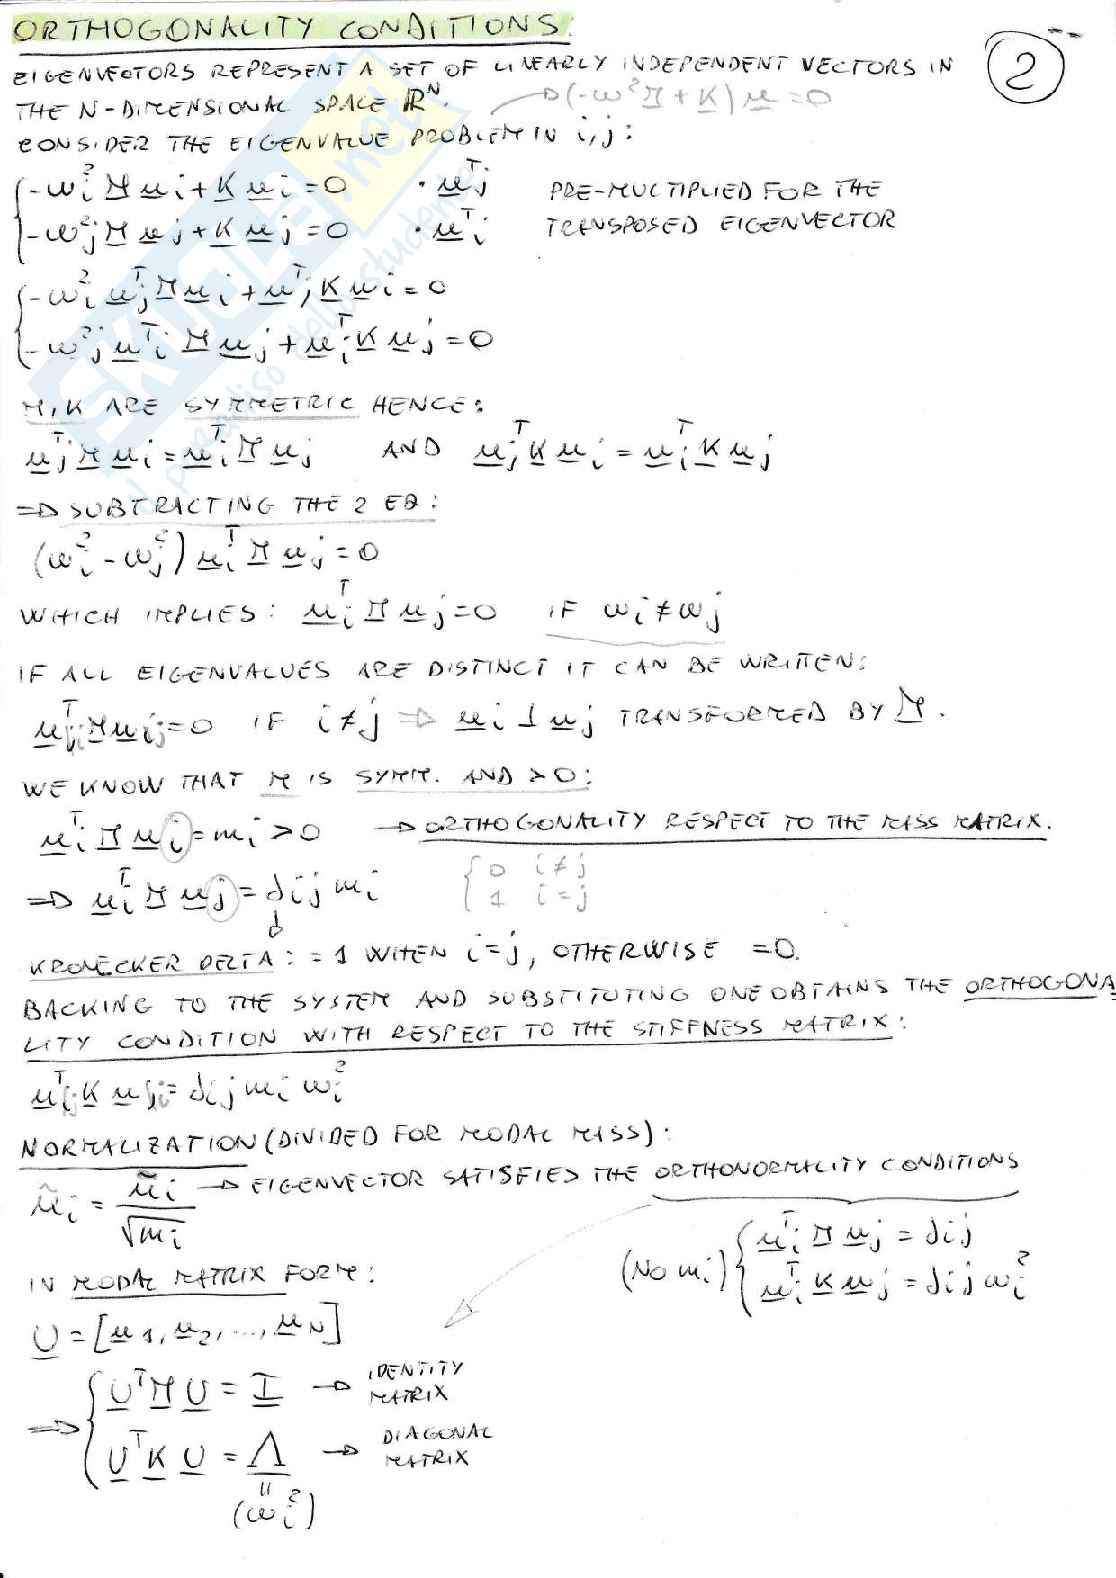 ORTHOGONALITY CONDITIONS:
2
EIGENVECTORS REPRESENT A SET OF LINEARLY INDEPENDENT VECTORS IN
THE N-DIMENSIONAL SPACE ℝ^N. → (-ω²M+K)u=0
CONSIDER THE EIGENVALUE PROBLEM IN i,j:
{-ω_i² M u_i + K u_i = 0 · u_j^T PRE-MULTIPLIED FOR THE
{-ω_j² M u_j + K u_j = 0 · u_i^T TRANSPOSED EIGENVECTOR
{-ω_i² u_j^T M u_i + u_j^T K u_i = 0
{-ω_j² u_i^T M u_j + u_i^T K u_j = 0
M,K ARE SYMMETRIC HENCE:
u_j^T M u_i = u_i^T M u_j AND u_j^T K u_i = u_i^T K u_j
⇒ SUBTRACTING THE 2 EQ:
(ω_i² - ω_j²) u_i^T M u_j = 0
WHICH IMPLIES: u_i^T M u_j = 0 IF ω_i ≠ ω_j
IF ALL EIGENVALUES ARE DISTINCT IT CAN BE WRITTEN:
u_i^T M u_j = 0 IF i≠j ⇒ u_i ⊥ u_j TRANSFORMED BY M.
WE KNOW THAT M IS SYMM. AND >0:
u_i^T M u_i = m_i > 0 → ORTHOGONALITY RESPECT TO THE MASS MATRIX.
⇒ u_i^T M u_j = δ_ij m_i { 0 i≠j
1 i=j
KRONECKER DELTA: =1 WHEN i=j, OTHERWISE =0.
BACKING TO THE SYSTEM AND SUBSTITUTING ONE OBTAINS THE ORTHOGONA
LITY CONDITION WITH RESPECT TO THE STIFFNESS MATRIX:
u_i^T K u_j = δ_ij m_i ω_i²
NORMALIZATION (DIVIDED FOR MODAL MASS):
ũ_i = ũ_i / √m_i → EIGENVECTOR SATISFIED THE ORTHONORMALITY CONDITIONS
(NO m_i) { u_i^T M u_j = δ_ij
u_i^T K u_j = δ_ij ω_i²
IN MODAL MATRIX FORM:
U = [u_1, u_2, ..., u_N]
⇒ { U^T M U = I → IDENTITY
MATRIX
U^T K U = Λ → DIAGONAL
MATRIX
=
(ω_i²)
SKUOLA.net
il paradiso dello studente